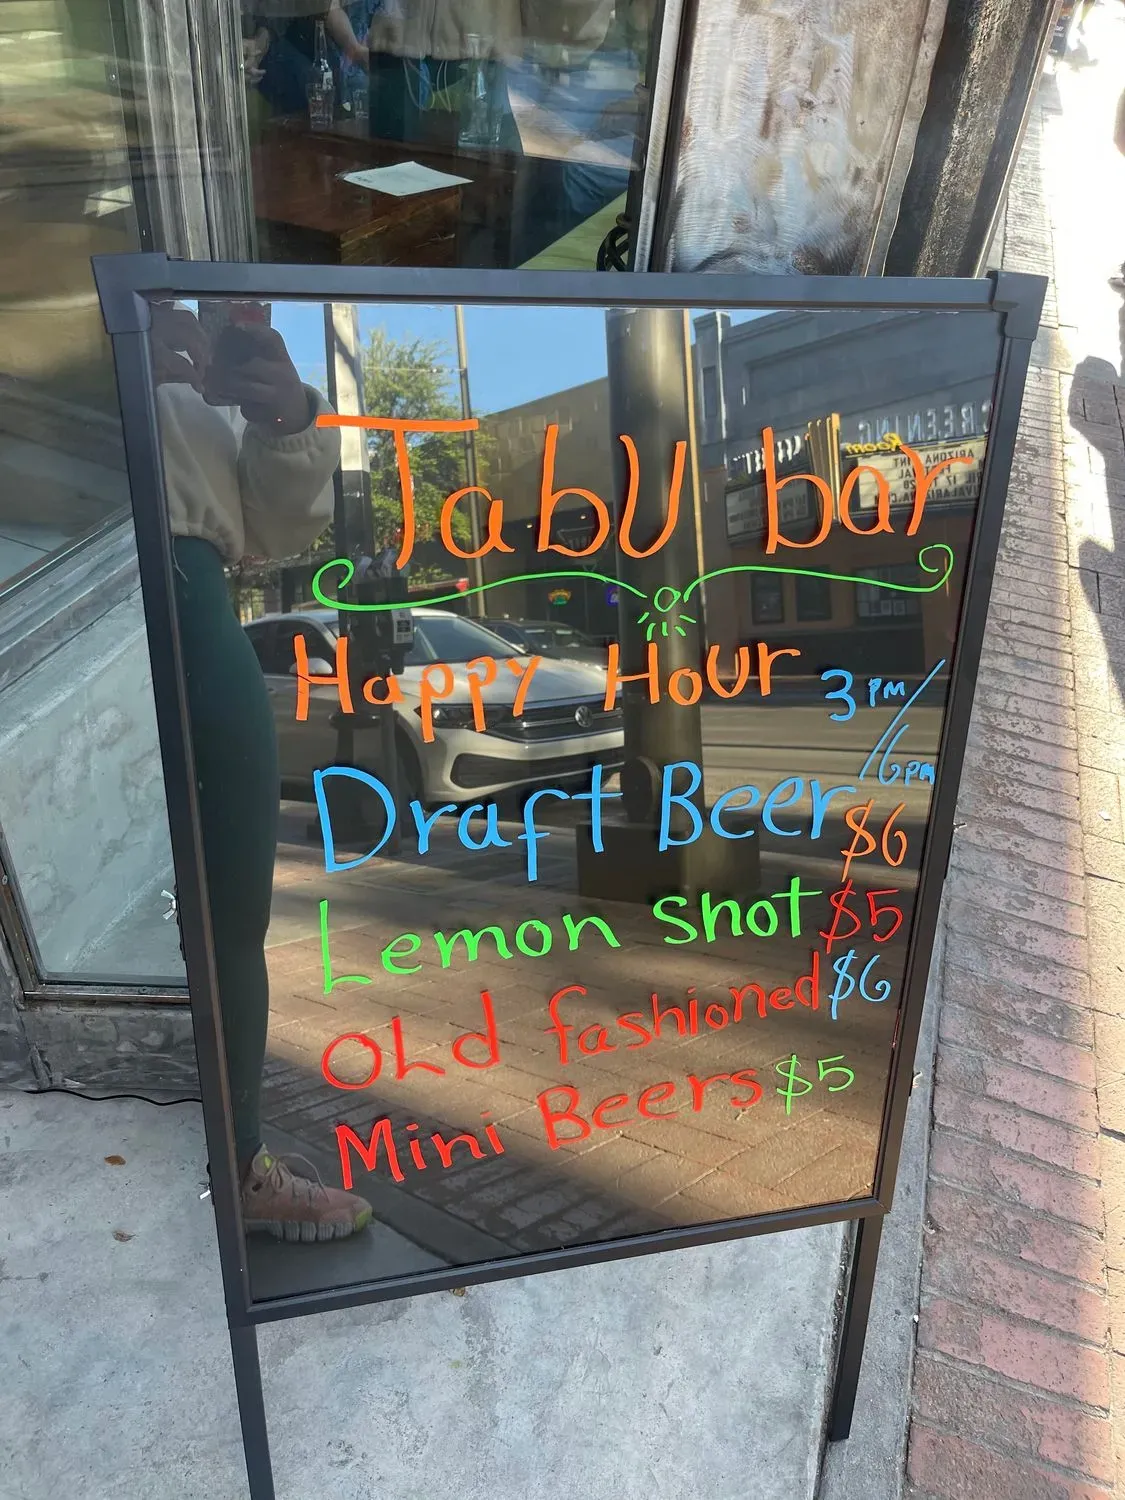 TabU bar
Happy Hour 3pm/6pm
Draft Beer $6
Lemon shot $5
OLd fashioned $6
Mini Beers $5
SCREENING
Room
ARIZONA